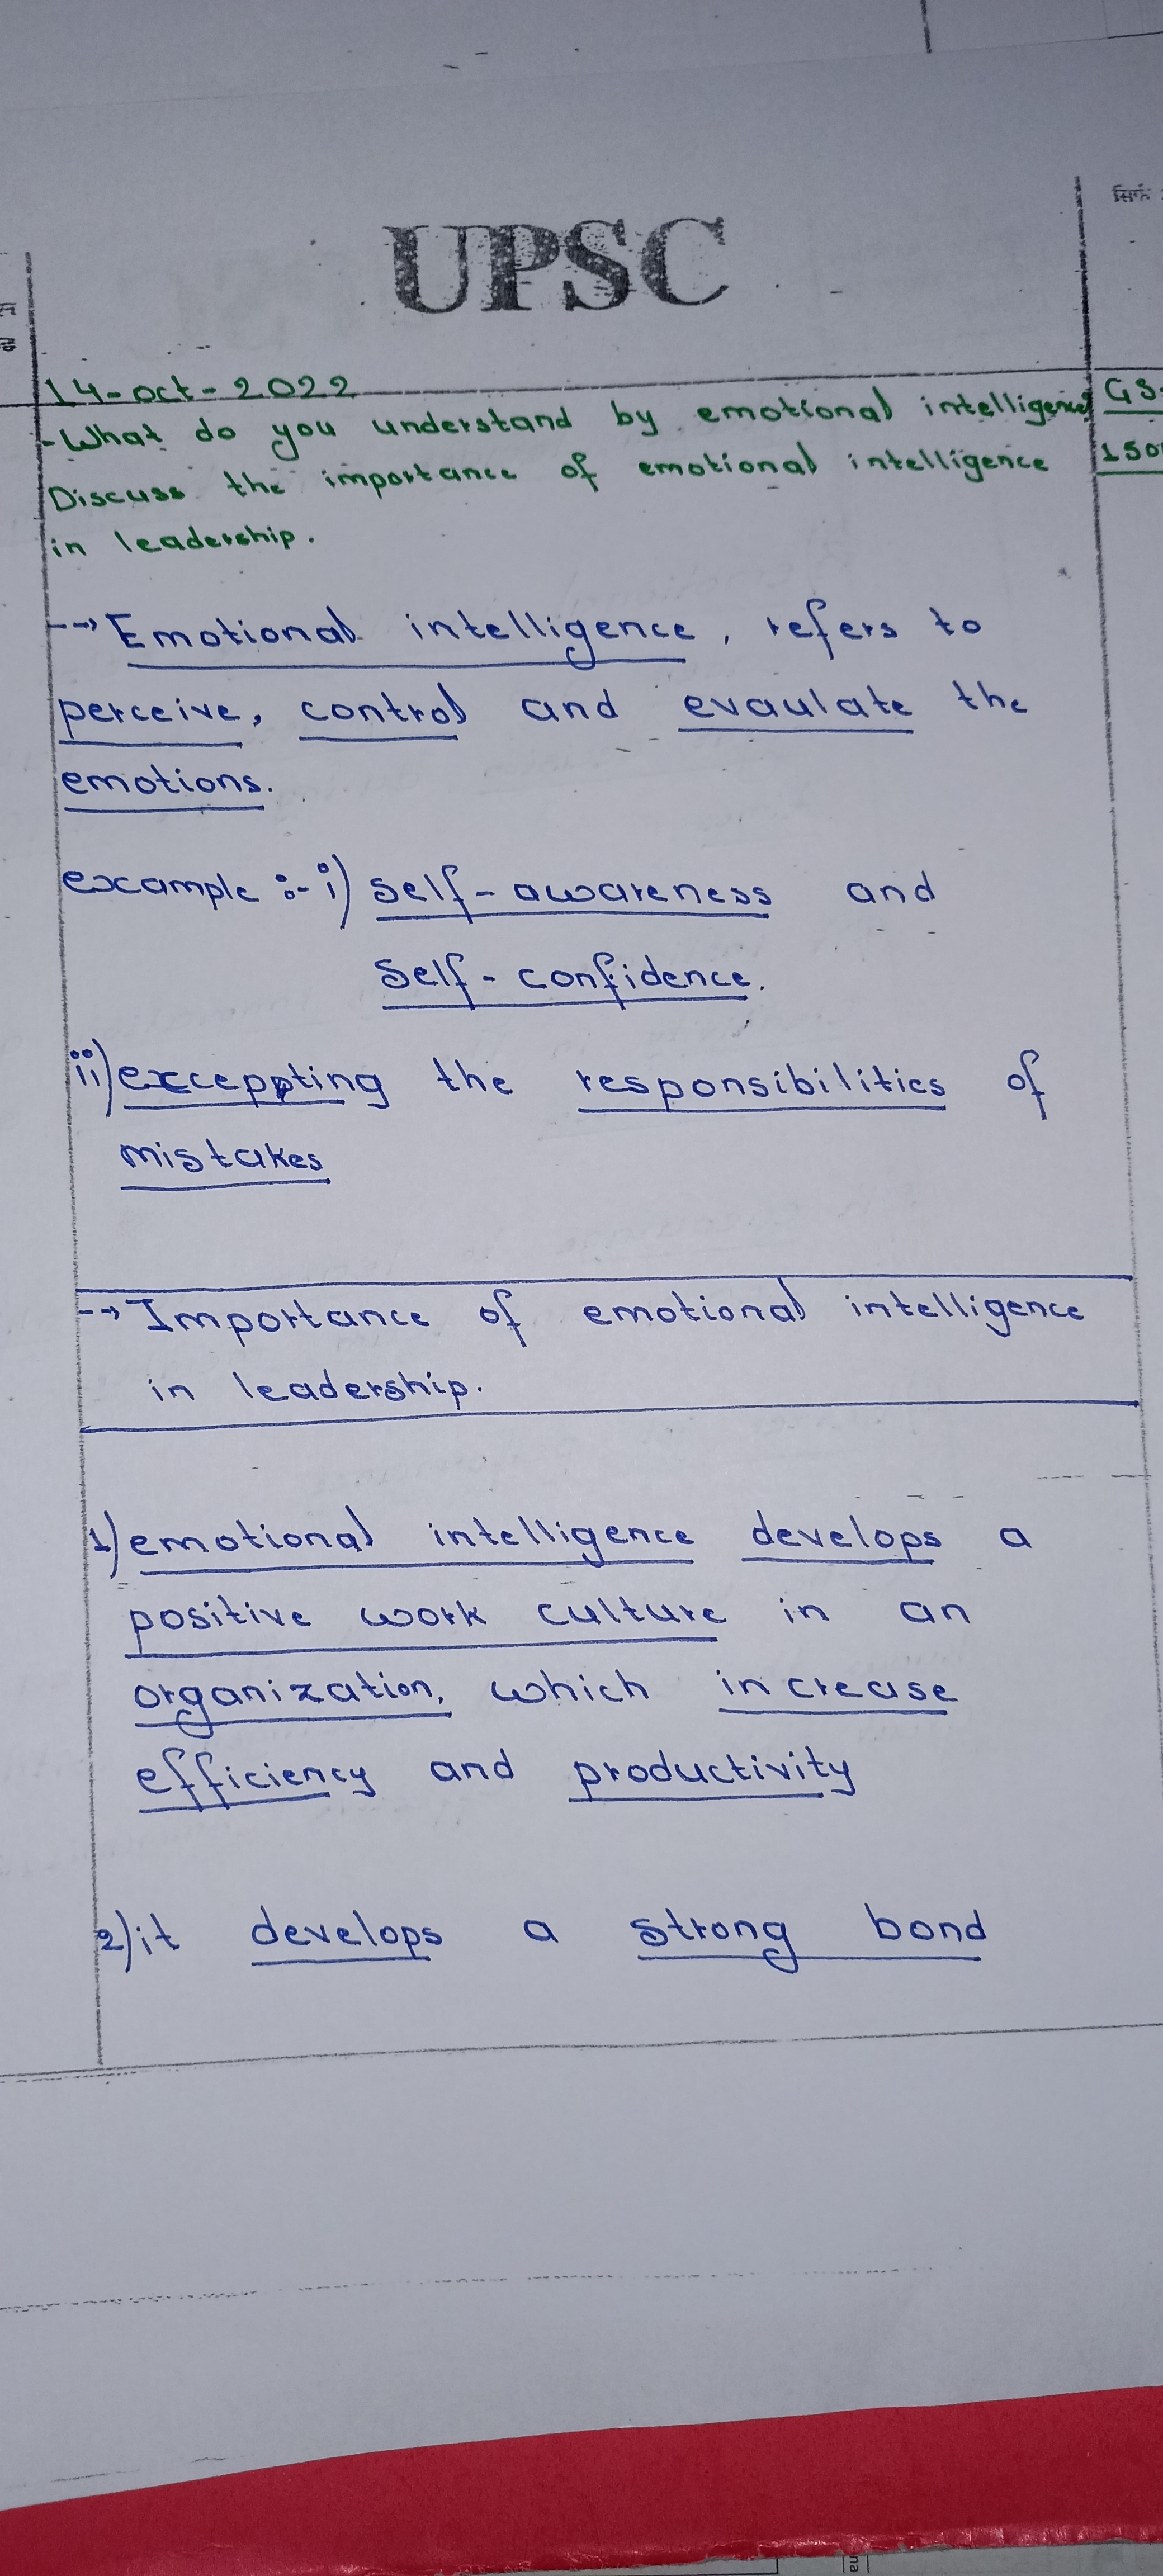 सिर्फ
UPSC
14-oct-2022
GS-
- What do you understand by emotional intelligence
150
Discuss the importance of emotional intelligence
in leadership.
--> Emotional intelligence, refers to
perceive, control and evaulate the
emotions.
example :- i) self-awareness and
self-confidence.
ii) excceppting the responsibilities of
mistakes
--> Importance of emotional intelligence
in leadership.
1) emotional intelligence develops a
positive work culture in an
organization, which increase
efficiency and productivity
2) it develops a strong bond
na